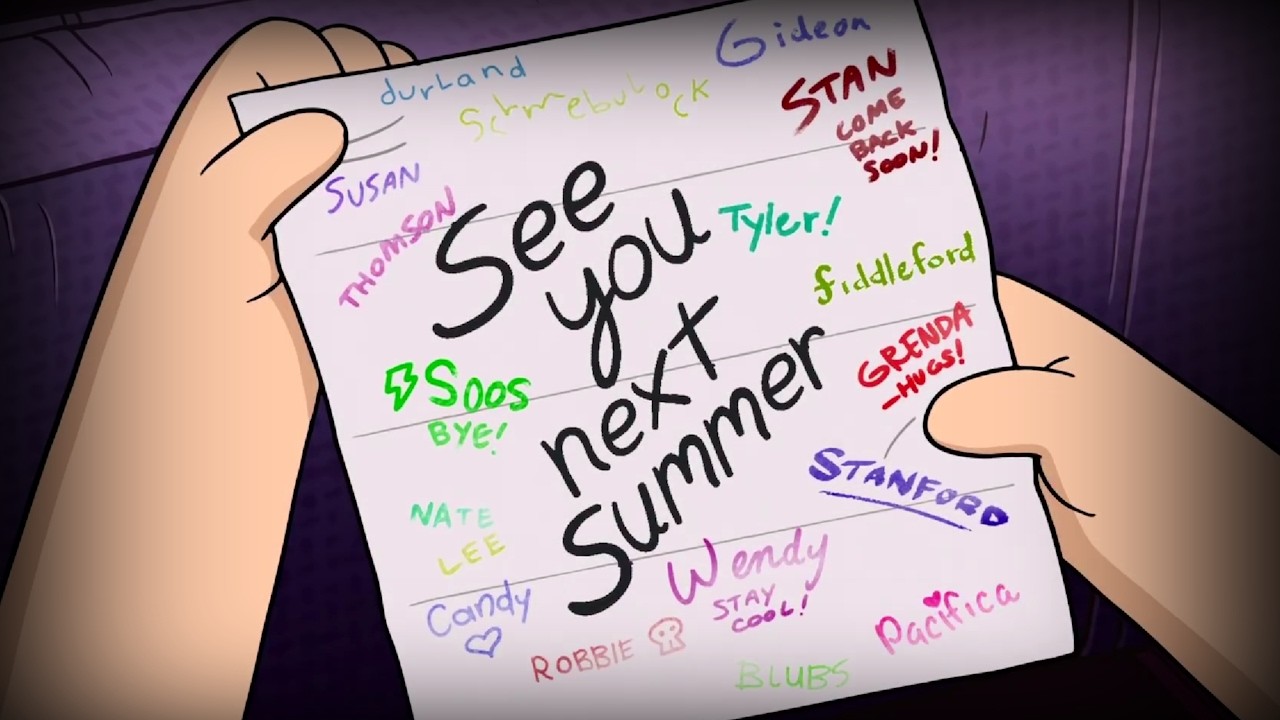 Gideon
durland
Schmebulock
STAN
COME
BACK
SOON!
SUSAN
THOMSON
See
you
next
summer
Tyler!
fiddleford
GRENDA
-HUGS!
SOOS
BYE!
STANFORD
NATE
LEE
Candy
Wendy
STAY
COOL!
Pacifica
ROBBIE
BLUBS